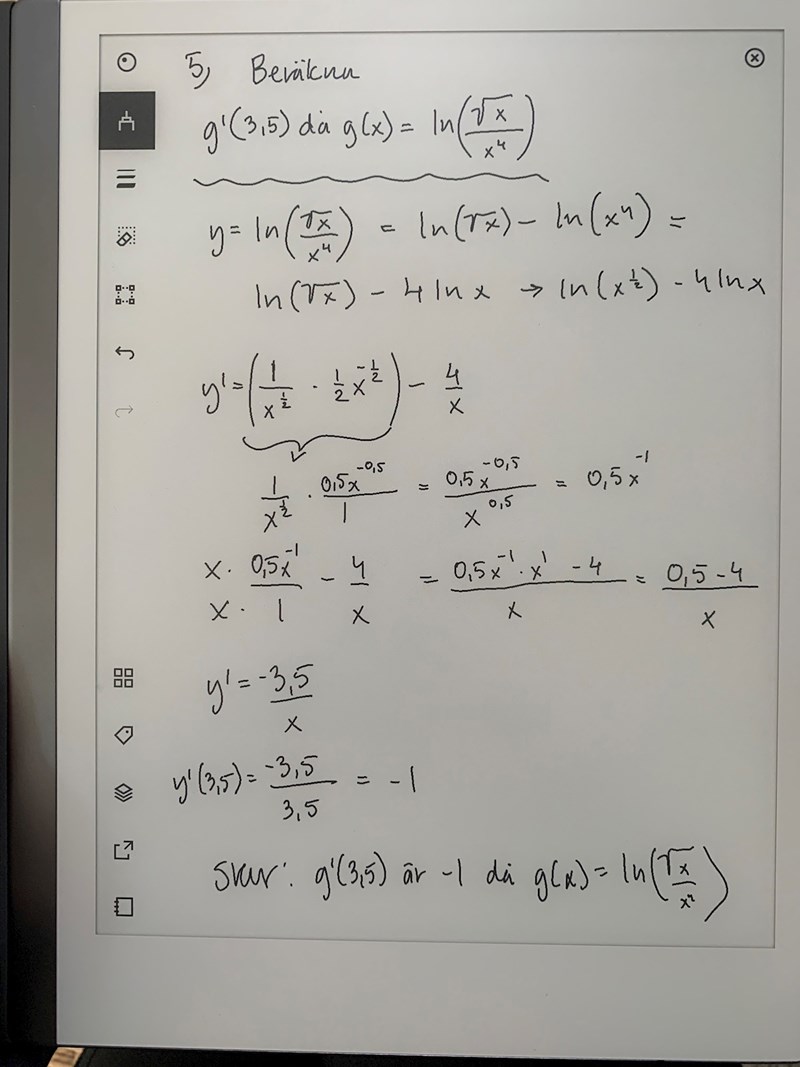 5, Beräkna
g'(3,5) då g(x) = ln(√x/x⁴)
y = ln(√x/x⁴) = ln(√x) - ln(x⁴) =
ln(√x) - 4 ln x → ln(x^½) - 4 ln x
y' = (1/x^½ · ½x^-½) - 4/x
1/x^½ · 0,5x^-0,5/1 = 0,5x^-0,5/x^0,5 = 0,5x^-1
x · 0,5x^-1/x · 1 - 4/x = 0,5x^-1 · x^1 - 4/x = 0,5 - 4/x
y' = -3,5/x
y'(3,5) = -3,5/3,5 = -1
Svar: g'(3,5) är -1 då g(x) = ln(√x/x²)